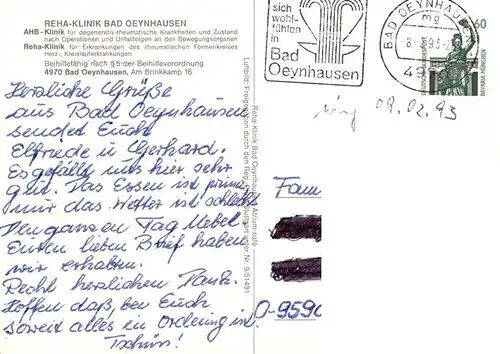 REHA-KLINIK BAD OEYNHAUSEN
AHB-Klinik für degenerativ-rheumatische Krankheiten und Zustand
nach Operationen und Unfallfolgen an den Bewegungsorganen
Reha-Klinik für Erkrankungen des rheumatischen Formenkreises
Herz-, Kreislauferkrankungen
Beihilfefähig nach § 5 der Beihilfeverordnung
4970 Bad Oeynhausen, Am Brinkkamp 16
Herzliche Grüße
aus Bad Oeynhausen
sendet Euch
Elfriede u. Gerhard.
Es gefällt uns hier sehr
gut. Das Essen ist prima,
nur das Wetter ist schlecht
Den ganzen Tag Nebel.
Euren lieben Brief haben
wir erhalten.
Recht herzlichen Dank.
Hoffen daß, bei Euch
soweit alles in Ordnung ist.
Tschüss!
Reha-Klinik Bad Oeynhausen, Atrium-café
Luftbild: Freigegeben durch den Reg. Stuttgart unter Nr. 9/51491
sich
wohl-
fühlen
in
Bad
Oeynhausen
BAD OEYNHAUSEN
mg
49
60
BAVARIA MÜNCHEN
09.02.93
Fam
O-9590